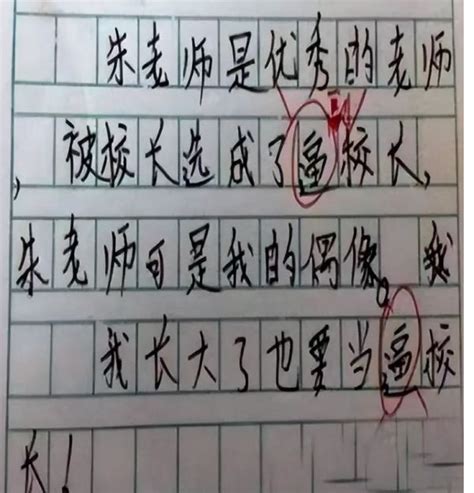 朱老师是优秀的老师
被校长选成了逼校长，
朱老师可是我的偶像。我
我长大了也要当逼校
长！